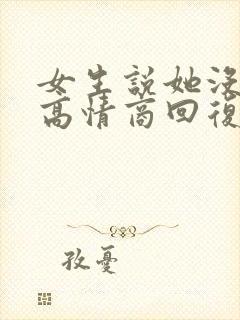 女生說她沒
高情商回復
孜憂